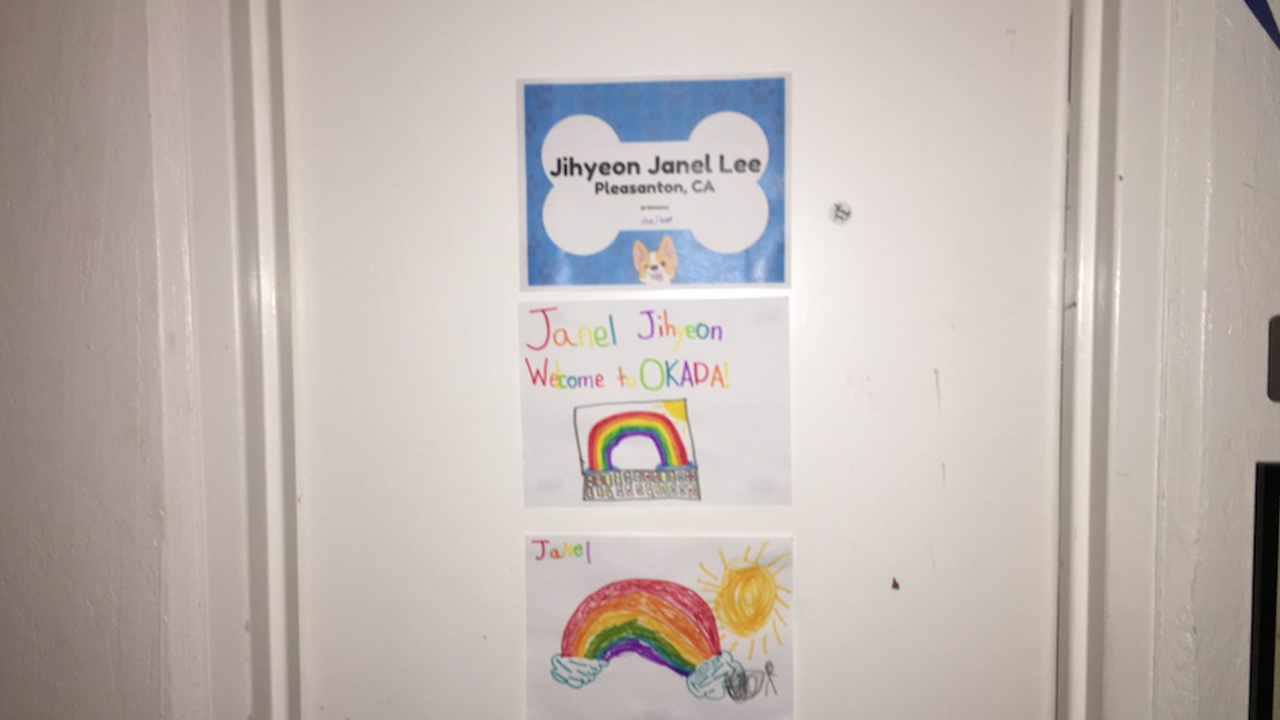 Jihyeon Janel Lee
Pleasanton, CA
pronouns
she/her
Janel Jihyeon
Welcome to OKADA!
Janel